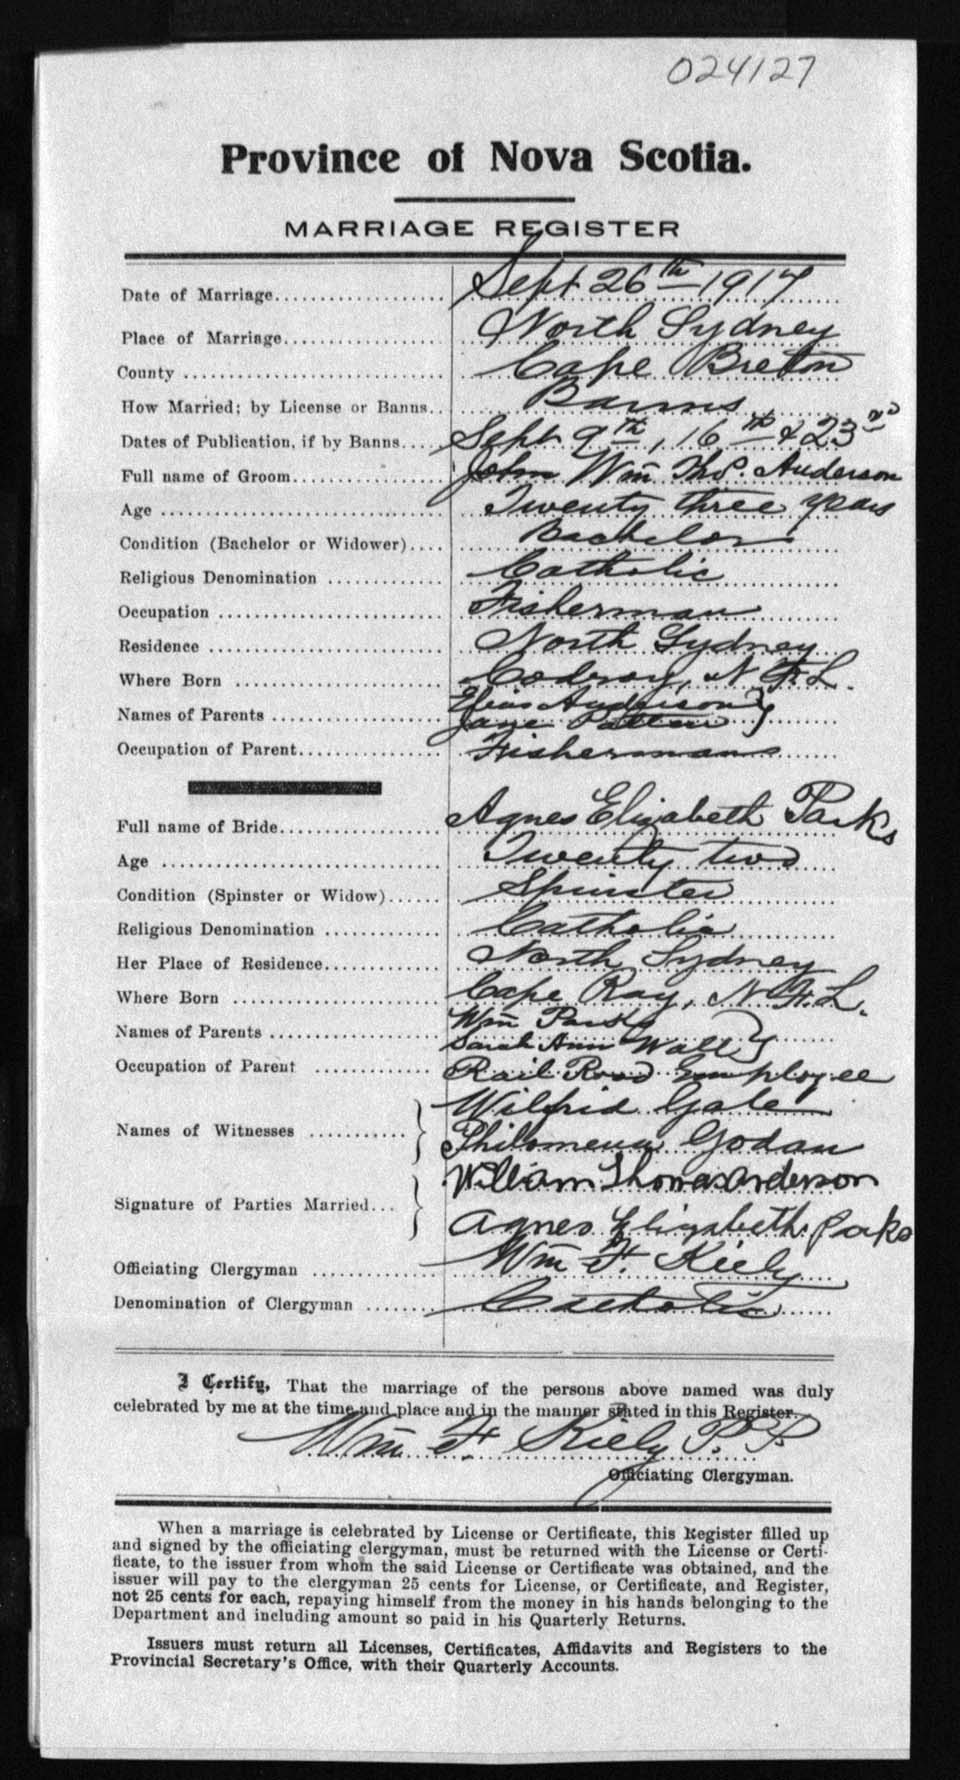 024127
Province of Nova Scotia.
MARRIAGE REGISTER
Date of Marriage.................... Sept 26th 1917
Place of Marriage.................... North Sydney
County .................... Cape Breton
How Married; by License or Banns.. Banns
Dates of Publication, if by Banns..... Sept 9th, 16th & 23rd
Full name of Groom.................... John Wm Thos. Anderson
Age .................... Twenty three years
Condition (Bachelor or Widower).... Bachelor
Religious Denomination .............. Catholic
Occupation .................... Fisherman
Residence .................... North Sydney
Where Born .................... Codroy, N.F.L.
Names of Parents .................... Elias Anderson }
Jane Patten
Occupation of Parent................. Fisherman
Full name of Bride.................... Agnes Elizabeth Parks
Age .................... Twenty two
Condition (Spinster or Widow)...... Spinster
Religious Denomination .............. Catholic
Her Place of Residence.............. North Sydney
Where Born .................... Cape Ray, N.F.L.
Names of Parents .................... Wm Parks }
Sarah Ann Wall
Occupation of Parent .............. Rail Road Employee
Names of Witnesses ........... } Wilfrid Gale
Philomena Godau
Signature of Parties Married... } William Thomas Anderson
Agnes Elizabeth Parks
Officiating Clergyman .............. Wm F. Kiely
Denomination of Clergyman ........ Catholic
I Certify, That the marriage of the persons above named was duly
celebrated by me at the time and place and in the manner stated in this Register.
Wm F. Kiely P.P.
Officiating Clergyman.
When a marriage is celebrated by License or Certificate, this Register filled up
and signed by the officiating clergyman, must be returned with the License or Certi-
ficate, to the issuer from whom the said License or Certificate was obtained, and the
issuer will pay to the clergyman 25 cents for License, or Certificate, and Register,
not 25 cents for each, repaying himself from the money in his hands belonging to the
Department and including amount so paid in his Quarterly Returns.
Issuers must return all Licenses, Certificates, Affidavits and Registers to the
Provincial Secretary's Office, with their Quarterly Accounts.